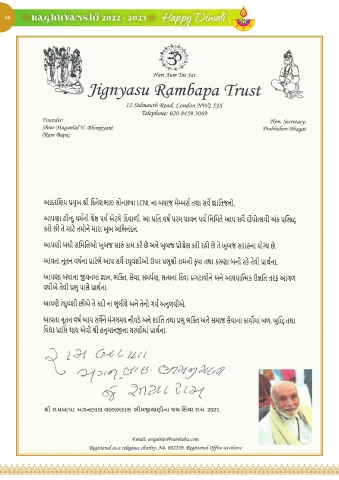 56 RAGHUVANSHI 2022 - 2023 Happy Diwali
Hari Aum Tat Sat
Jignyasu Rambapa Trust
12 Sidmouth Road, London NW2 5JX
Telephone: 020 8459 3069
Founder:
Shree Maganlal V. Bhimjiyani
(Ram Bapa)
Hon. Secretary:
Prabhaben Bhagat
આદરણિય પ્રમુખ શ્રી દિનેશભાઇ સોનછત્રા LCNL ના બધાજ મેમ્બર્સ તથા સર્વે જ્ઞાતિજનો.
આપણા હીન્દુ ધર્મનો શ્રેષ્ઠ પર્વ એટલે દિવાળી. આ પ્રતિ વર્ષ પરમ પાવન પર્વ નિમિતે આપ સર્વે દીપોત્સવી અંક પ્રસિધ્ધ
કરો છો તે માટે તમોને મારા ખુબ અભિનંદન.
આપણી બધી સમિતિઓ ખુબજ સારું કામ કરે છે અને ખુબજ પ્રોગ્રેસ કરી રહી છે તે ખુબજ સરાહના યોગ્ય છે.
આવતા નૂતન વર્ષના પ્રારંભે આપ સર્વે રઘુવંશીઓ ઉપર પ્રભુશ્રી રામની કૃપા તથા કરુણા બની રહે તેવી પ્રાર્થના.
આપણા બધાના જીવનમાં જ્ઞાન, ભક્તિ, સેવા, સમર્પણ, સત્યના દિવા પ્રગટાવીને અને આધ્યાત્મિક ઉન્નતિ તરફ આગળ
વધીએ તેવી પ્રભુ પાસે પ્રાર્થના.
આપણે રઘુવંશી છીએ તે કદી ના ભુલીએ અને તેનો ગર્વ અનુભવીએ.
આવતા નૂતન વર્ષ આપ સર્વેને મંગલમય નીવડે અને શાંતિ તથા પ્રભુ ભક્તિ અને સમાજ સેવાના કાર્યોમાં બળ, બુધ્ધિ તથા
વિદ્યા પ્રાપ્તિ થાય એવી શ્રી હનુમાનજીના ચરણોમાં પ્રાર્થના.
શ્રી રામબાપા મગનલાલ વલ્લભદાસ ભીમજીયાણીના જય સિયા રામ 2021
Email: enquiries@rambaba.com
Registered as a religious charity. No. 802539. Registered Office as above